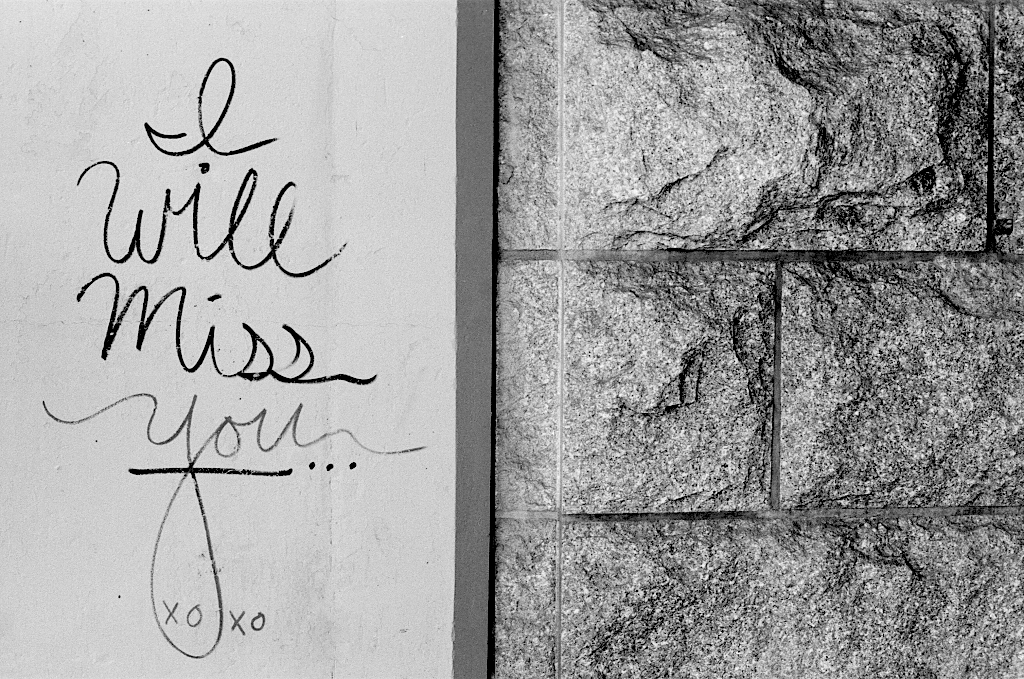 I
Will
Miss
you...
xo xo